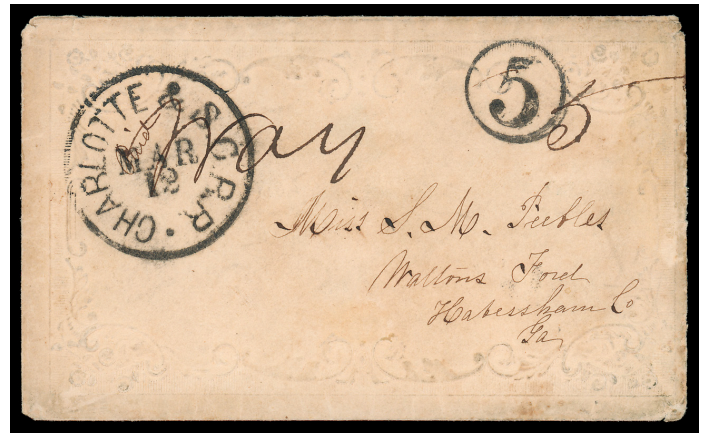 CHARLOTTE & S. C. R. R.
Paid
MAR
12
Way
5
5
Miss S. M. Peebles
Waltons Ford
Habersham Co
Ga